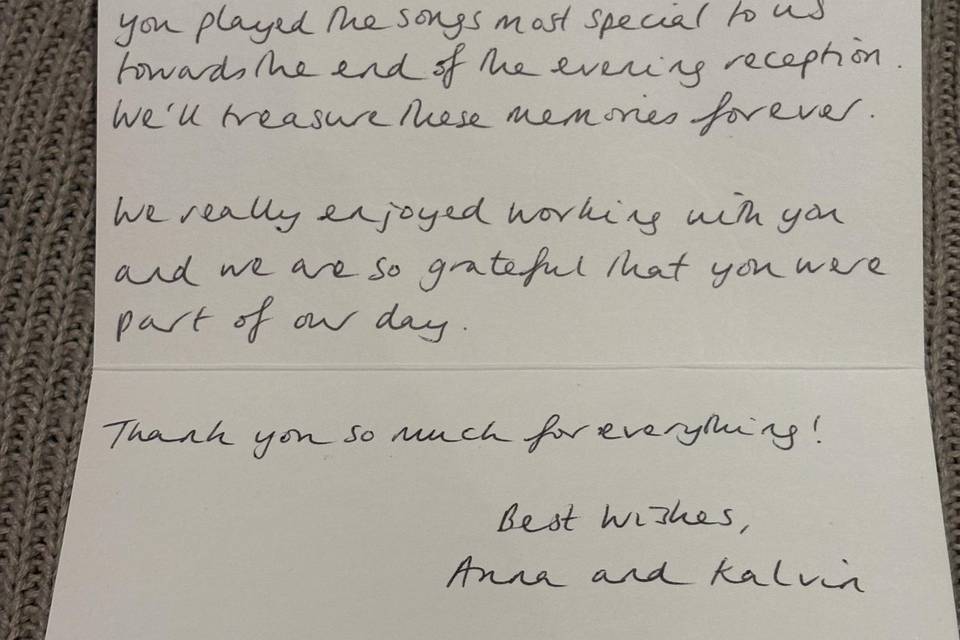 you played the songs most special to us
towards the end of the evening reception.
We'll treasure these memories forever.
We really enjoyed working with you
and we are so grateful that you were
part of our day.
Thank you so much for everything!
Best Wishes,
Anna and Kalvin